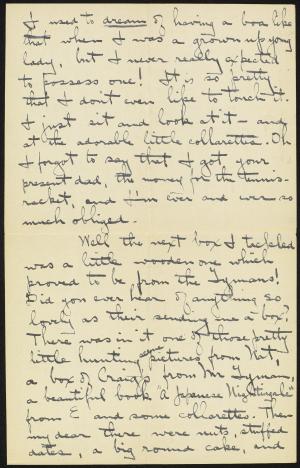 I used to dream of having a boa like
that when I was a grown up young
lady, but I never really expected
to possess one! It is so pretty
that I don't even like to touch it.
I just sit and look at it - and
at the adorable little collarettes. Oh
I forgot to say that I got your
present dad, the money for the tennis-
racket, and I'm ever and ever so
much obliged.
Well the next box I tackled
was a little wooden one which
proved to be from the Lymans!
Did you ever hear of anything so
lovely as their sending me a box?
There was in it one of those pretty
little hunting pictures from Nat,
a box of Craig's from Mr Lyman,
a beautiful book "A Japanese Nightingale"
from E and some collarettes. Then
my dear there were nuts, stuffed
dates, a big round cake, and